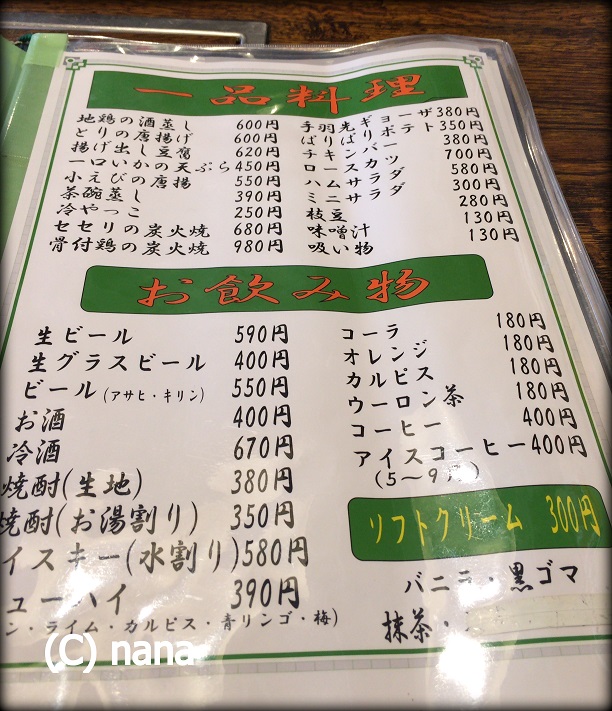 一品料理
地鶏の酒蒸し 600円
とりの唐揚げ 600円
揚げ出し豆腐 620円
一口いかの天ぷら 450円
小えびの唐揚 550円
茶碗蒸し 390円
冷やっこ 250円
セセリの炭火焼 680円
骨付鶏の炭火焼 980円
手羽先ギョーザ 380円
ぱりぱりポテト 350円
チキンバー 380円
ロースカツ 700円
ハムサラダ 580円
ミニサラダ 300円
枝豆 280円
味噌汁 130円
吸い物 130円
お飲み物
生ビール 590円
生グラスビール 400円
ビール(アサヒ・キリン) 550円
お酒 400円
冷酒 670円
焼酎(生地) 380円
焼酎(お湯割り) 350円
イスキー(水割り) 580円
ューハイ 390円
ン・ライム・カルピス・青リンゴ・梅)
コーラ 180円
オレンジ 180円
カルピス 180円
ウーロン茶 180円
コーヒー 400円
アイスコーヒー 400円
(5～9月)
ソフトクリーム 300円
バニラ・黒ゴマ
抹茶・
(C) nana